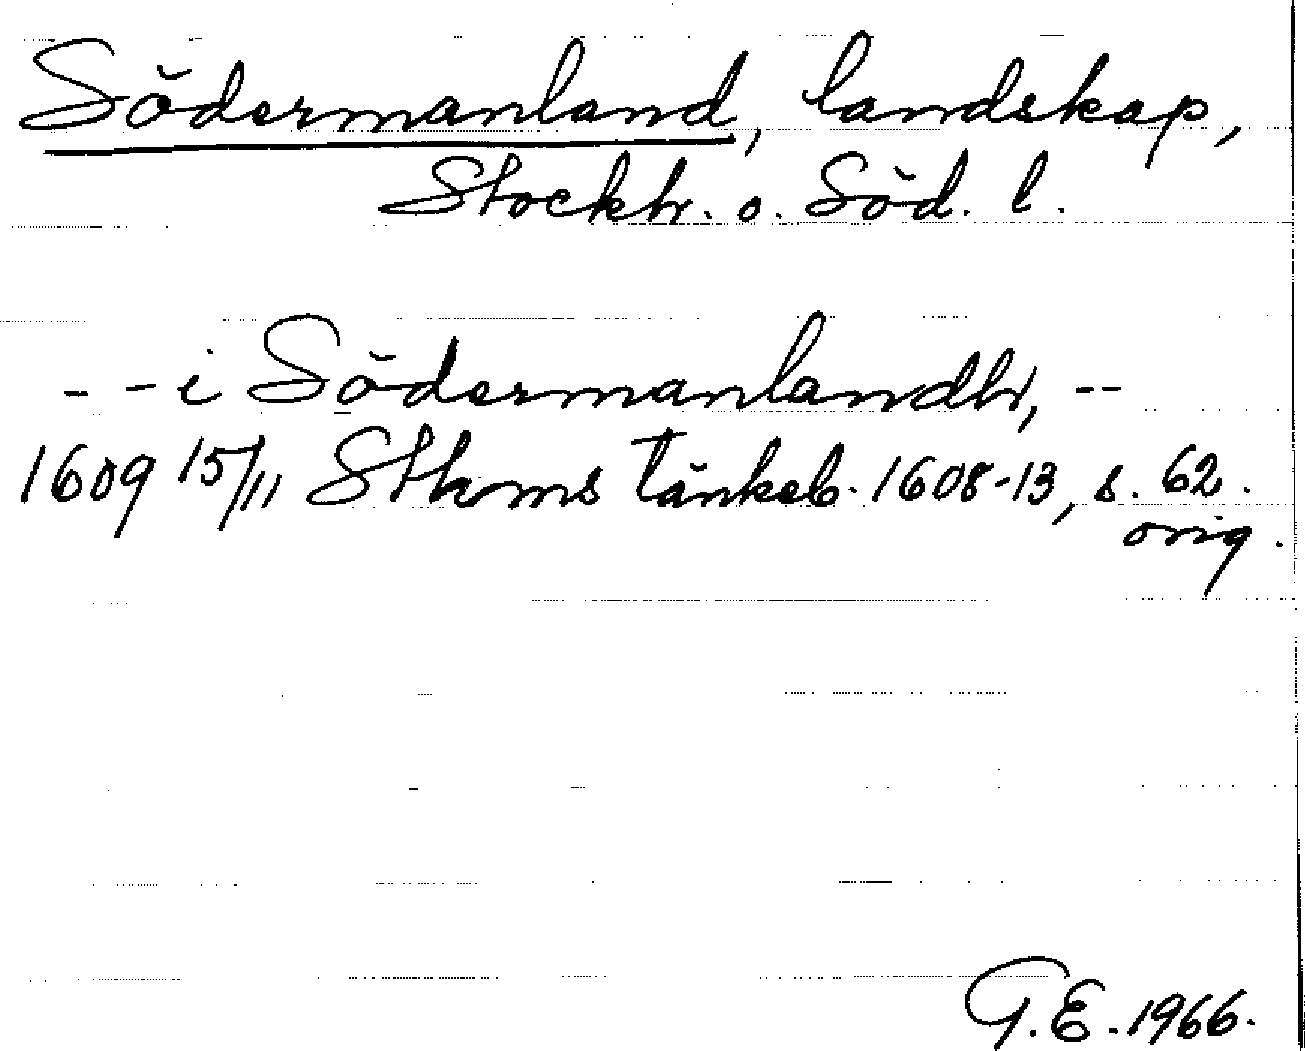 Södermanland, landskap,
Stockh. o. Söd. l.
- - i Södermanlandh, --
1609 15/11 Sthms tänkeb. 1608-13, s. 62.
orig.
G.E. 1966.